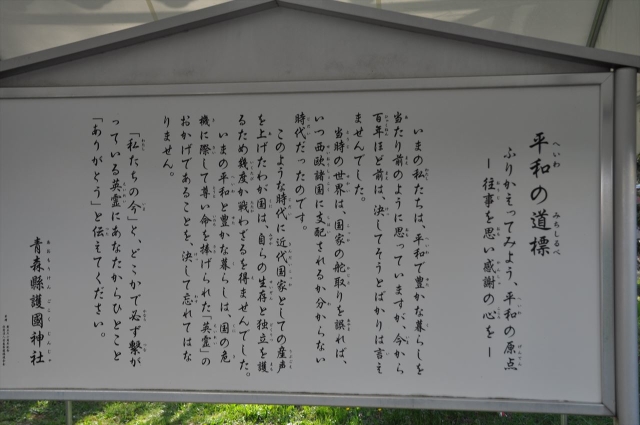 平和の道標
ふりかえってみよう、平和の原点
―往事を思い感謝の心を―
いまの私たちは、平和で豊かな暮らしを
当たり前のように思っていますが、今から
百年ほど前は、決してそうとばかりは言え
ませんでした。
当時の世界は、国家の舵取りを誤れば、
いつ西欧諸国に支配されるか分からない
時代だったのです。
このような時代に近代国家としての産声
を上げたわが国は、自らの生存と独立を護
るため幾度か戦わざるを得ませんでした。
いまの平和と豊かな暮らしは、国の危
機に際して尊い命を捧げられた「英霊」の
おかげであることを、決して忘れてはな
りません。
「私たちの今」と、どこかで必ず繋が
っている英霊にあなたからひとこと
「ありがとう」と伝えてください。
青森縣護國神社